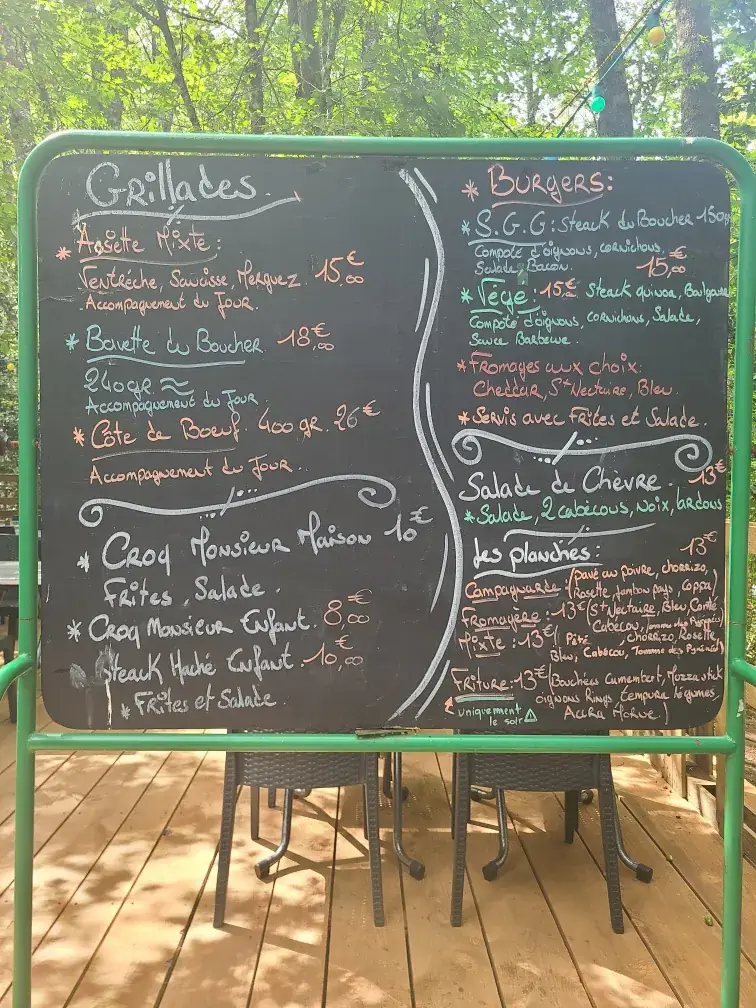 Grillades.
* Assiette Mixte :
Ventrêche, Saucisse, Merguez. 15,00€
Accompagnement du Jour.
* Bavette du Boucher. 18,00€
240gr ≈
Accompagnement du Jour.
* Côte de Boeuf. 400 gr. 26€
Accompagnement du Jour.
* Croq Monsieur Maison 10€
Frites, Salade.
* Croq Monsieur Enfant. 8,00€
Steack Haché Enfant. 10,00€
* Frites et Salade
* Burgers:
* S.G.G : Steack du Boucher 150gr
Compoté d'oignons, cornichons,
Salade, Bacon. 15,00€
* Végé : 15€ Steack quinoa, Boulgour
Compoté d'oignons, cornichons, Salade,
Sauce Barbecue.
* Fromages aux choix:
Cheddar, St Nectaire, Bleu.
* Servis avec Frites et Salade.
Salade de Chèvre. 13€
* Salade, 2 cabécous, noix, lardons
Les planches: 13€
Campagnarde (pavé au poivre, chorrizo,
Rosette, Jambon pays, Coppa)
Fromagère : 13€ (St Nectaire, Bleu, Comté,
Cabécou, Tomme des Pyrénées)
Mixte : 13€ ( Pâté, chorrizo, Rosette,
Bleu, Cabécou, Tomme des Pyrénées)
Friture : 13€ (Bouchées Camembert, Mozza stick
oignons Rings tempura légumes
Accra Morue )
uniquement
le soir